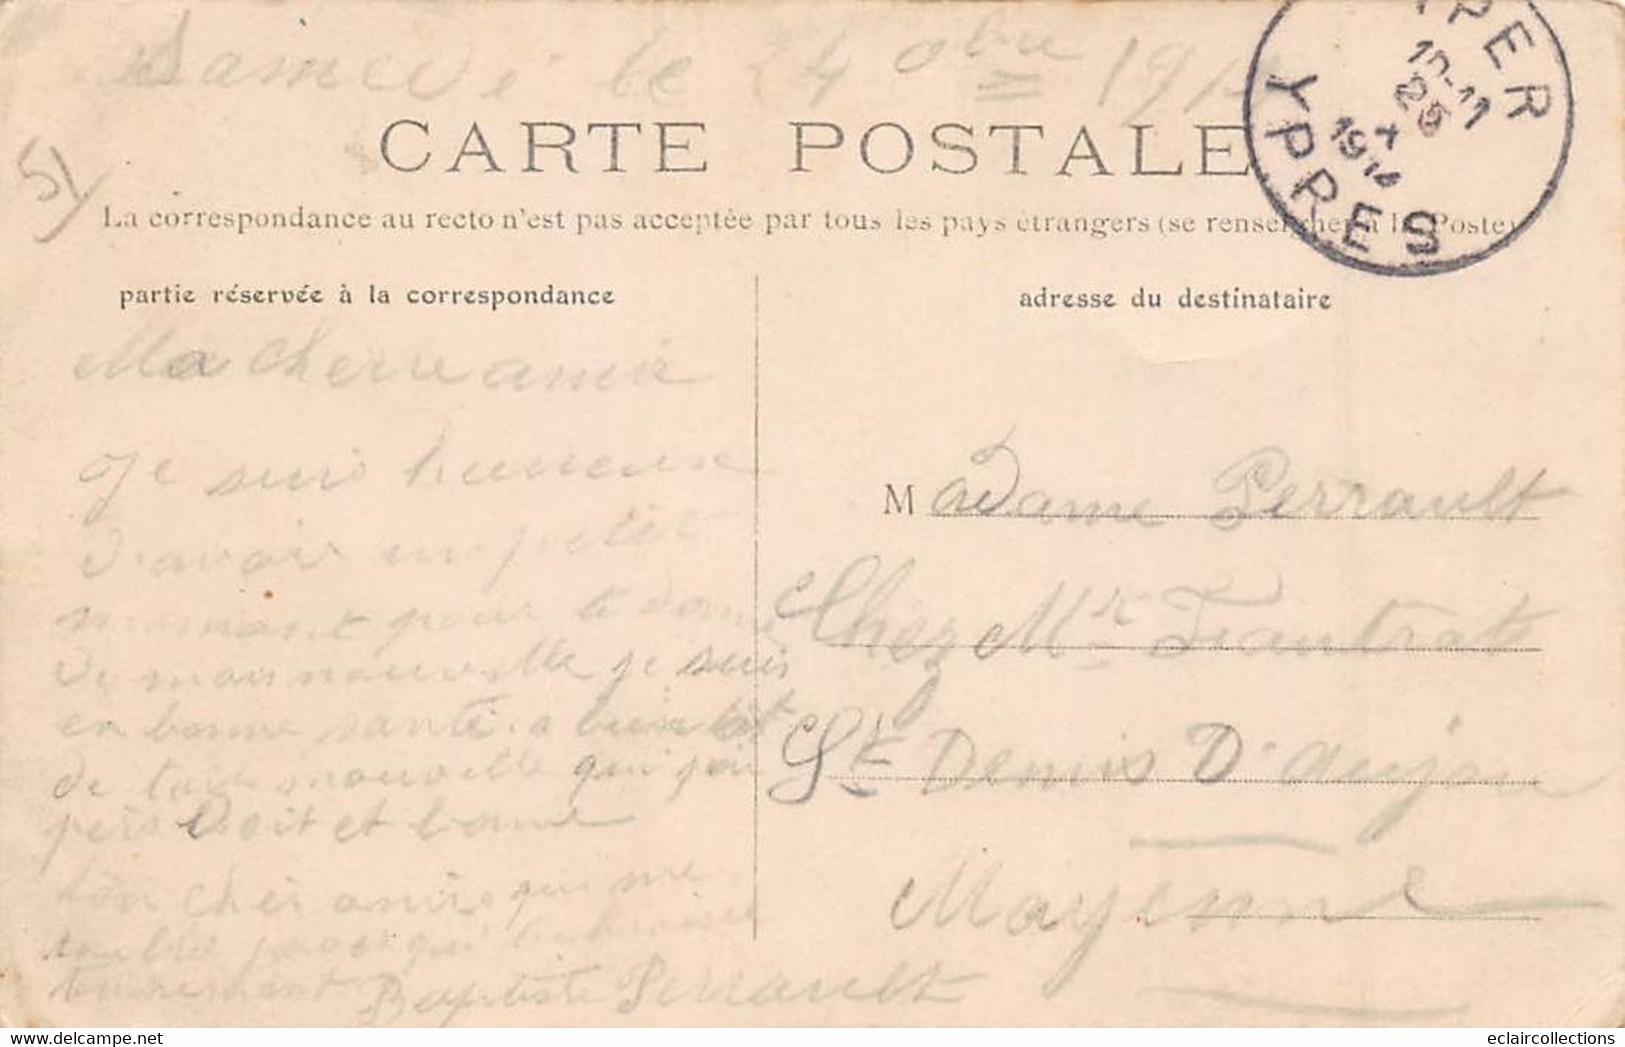 Samedi le 24 8bre 191
YPER
10-11
25
X
1914
YPRES
CARTE POSTALE
La correspondance au recto n'est pas acceptée par tous les pays étrangers (se renseigner à la Poste)
51
partie réservée à la correspondance
adresse du destinataire
Ma Cherre amie
Je suis hureuse
d'avoir un petit
moment pour te donné
de mais nouvelle je suis
en bonne santé. a bientot
de tais nouvelle qui sai
pèrs soit et bonne
ton cher amis qui ne
toublie pas et qui tembrasse
tendrement
Baptiste Perrault
Madame Perrault
Chez Mr
St Denis D'Anjou
Mayenne
eclaircollections